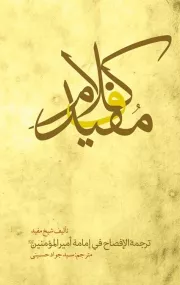 کلام
مفید
تألیف شیخ مفید
ترجمة الإفصاح في إمامة أميرالمؤمنین
مترجم: سید جواد حسینی